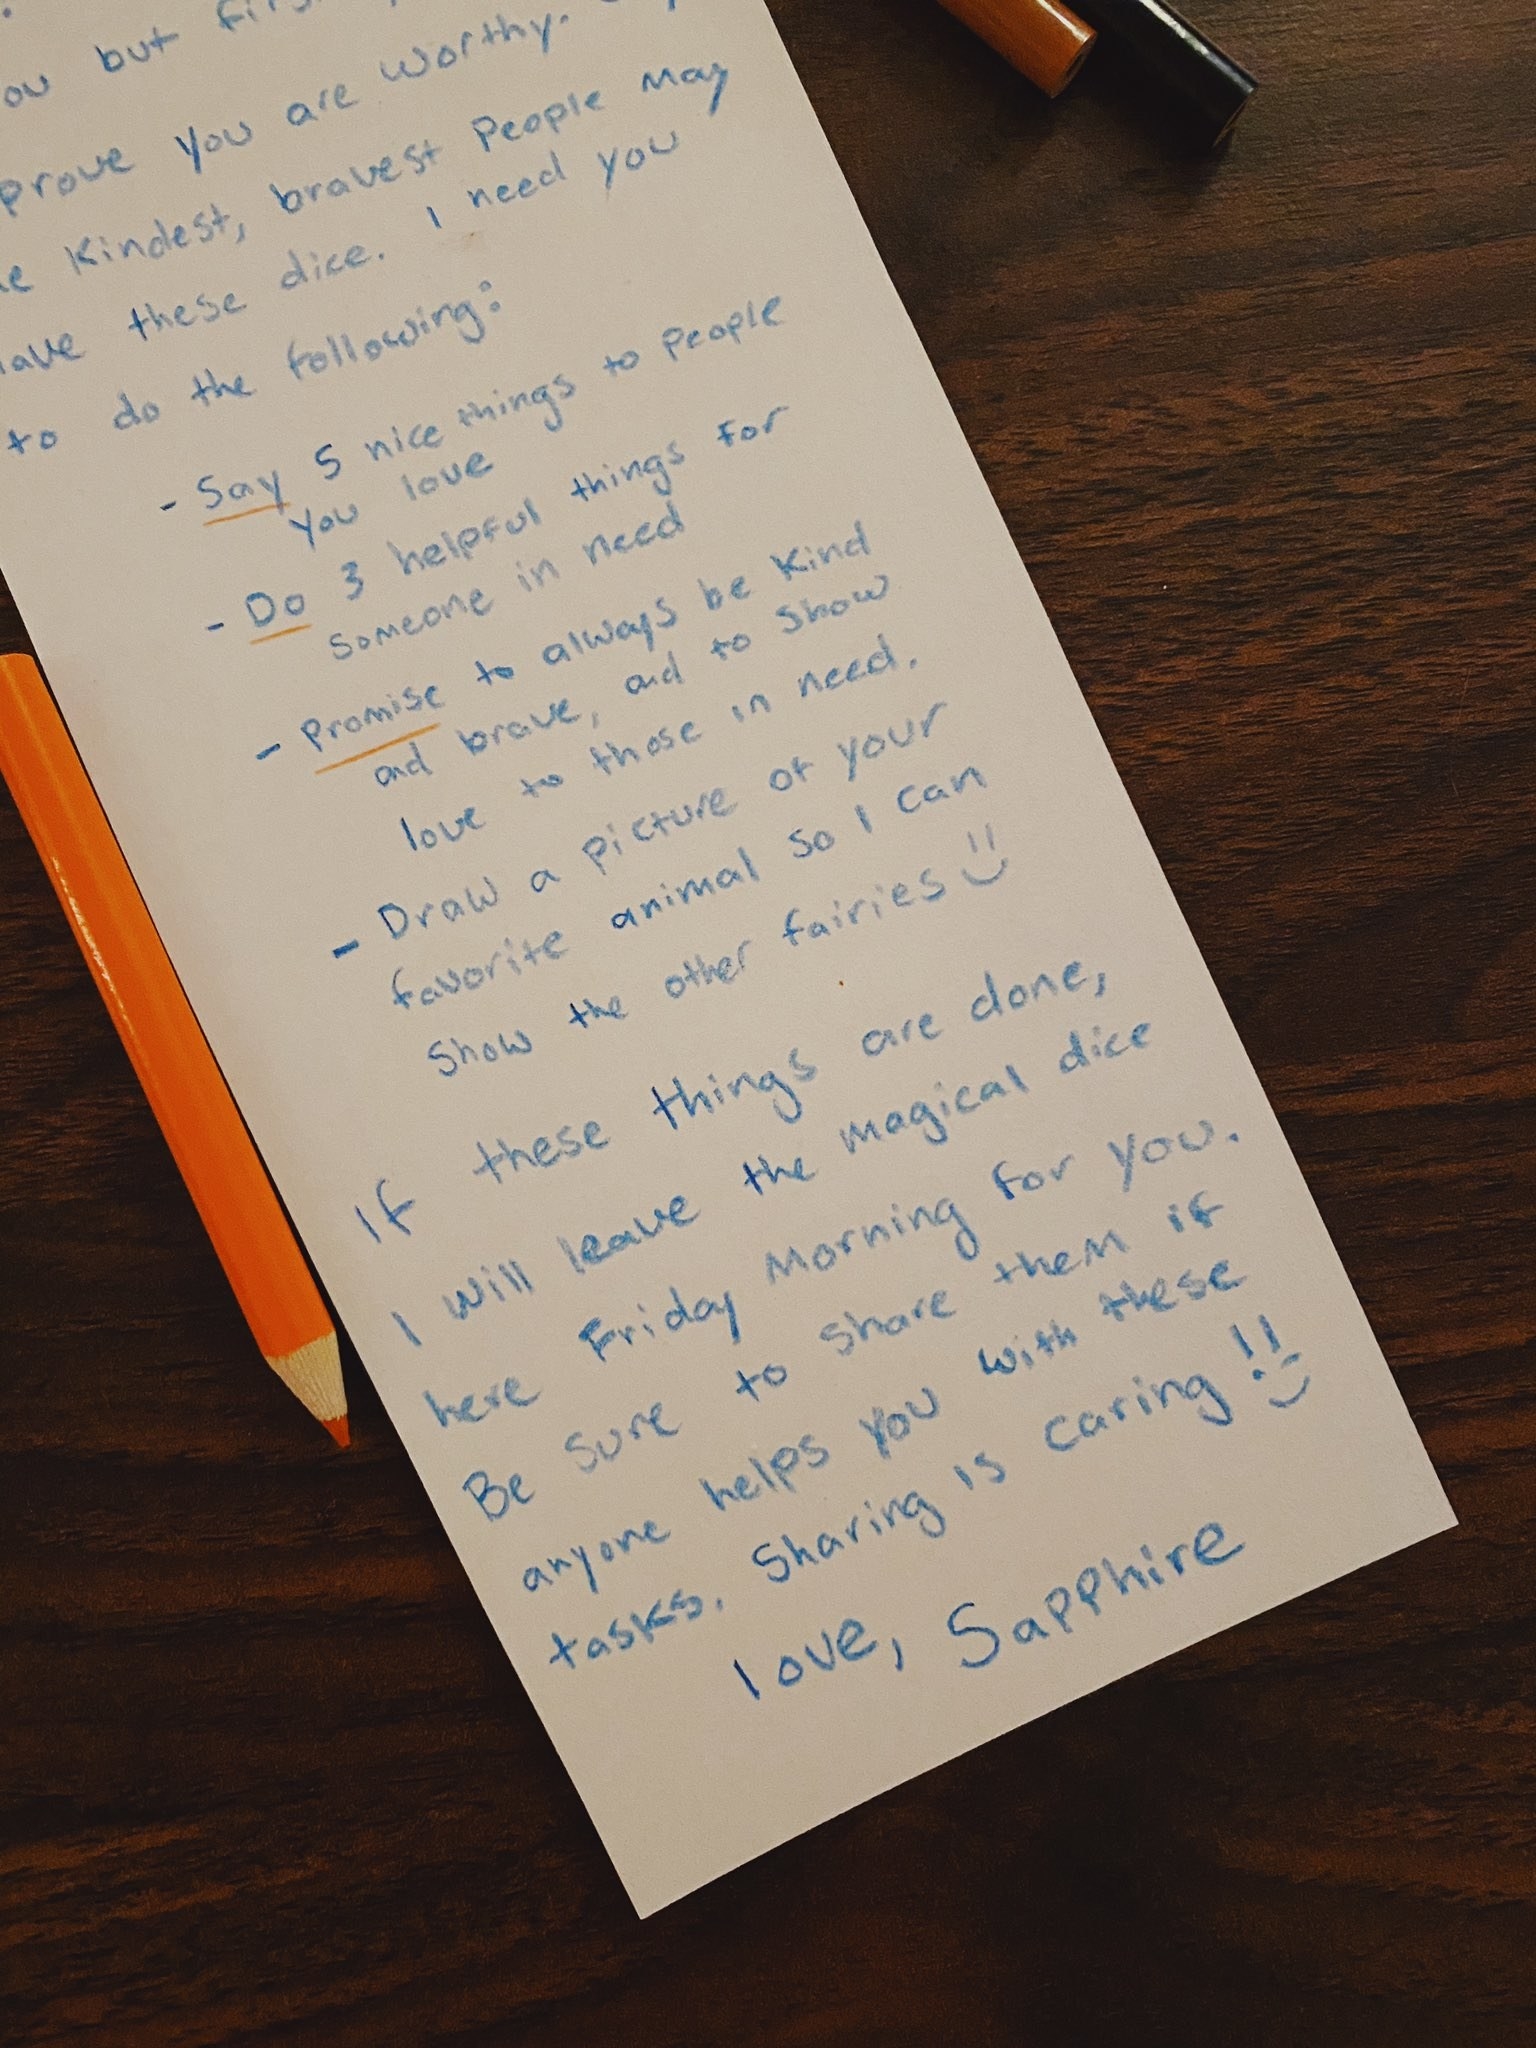 but first,
prove you are worthy.
Kindest, bravest people may
these dice. I need you
to do the following:
- Say 5 nice things to people
you love
- Do 3 helpful things for
someone in need
- Promise to always be kind
and brave, and to show
love to those in need.
- Draw a picture of your
favorite animal so I can
show the other fairies
If these things are done,
I will leave the magical dice
here Friday morning for you.
Be sure to share them if
anyone helps you with these
tasks. Sharing is caring!!
love, Sapphire